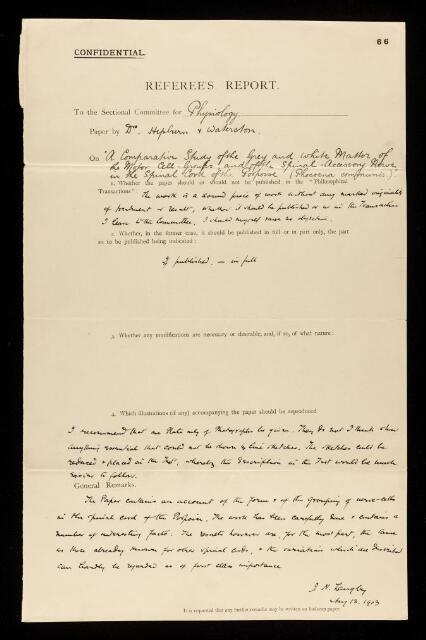 66
CONFIDENTIAL.
REFEREE'S REPORT.
To the Sectional Committee for Physiology
Paper by Drs. Hepburn & Waterston.
On "A Comparative Study of the Grey and White Matter, of
the Motor Cell-Groups, and of the Spinal-Accessory Nerve,
in the Spinal Cord of the Porpoise (Phocoena communis)"
1. Whether the paper should or should not be published in the "Philosophical
Transactions": The work is a sound piece of work without any marked originality
of treatment or result. Whether it should be published or no in the Transactions
I leave to the Committee. I should myself raise no objection.
2. Whether, in the former case, it should be published in full or in part only, the part
as to be published being indicated:
If published, – in full
3. Whether any modifications are necessary or desirable, and, if so, of what nature:
4. Which illustrations (if any) accompanying the paper should be reproduced
I recommend that one Plate only of Photographs be given. They do not I think show
anything essential that could not be shown by line sketches. The sketches could be
reduced & placed in the Text, whereby the description in the Text would be much
easier to follow.
General Remarks.
The Paper contains an account of the form & of the grouping of nerve-cells
in the spinal cord of the Porpoise. The work has been carefully done & contains a
number of interesting facts. The results however are, for the most part, the same
as those already known for other spinal cords, & the variations which are described
can hardly be regarded as of first class importance
J. N. Langley
Aug 13. 1903
It is requested that any further remarks may be written on foolscap paper.